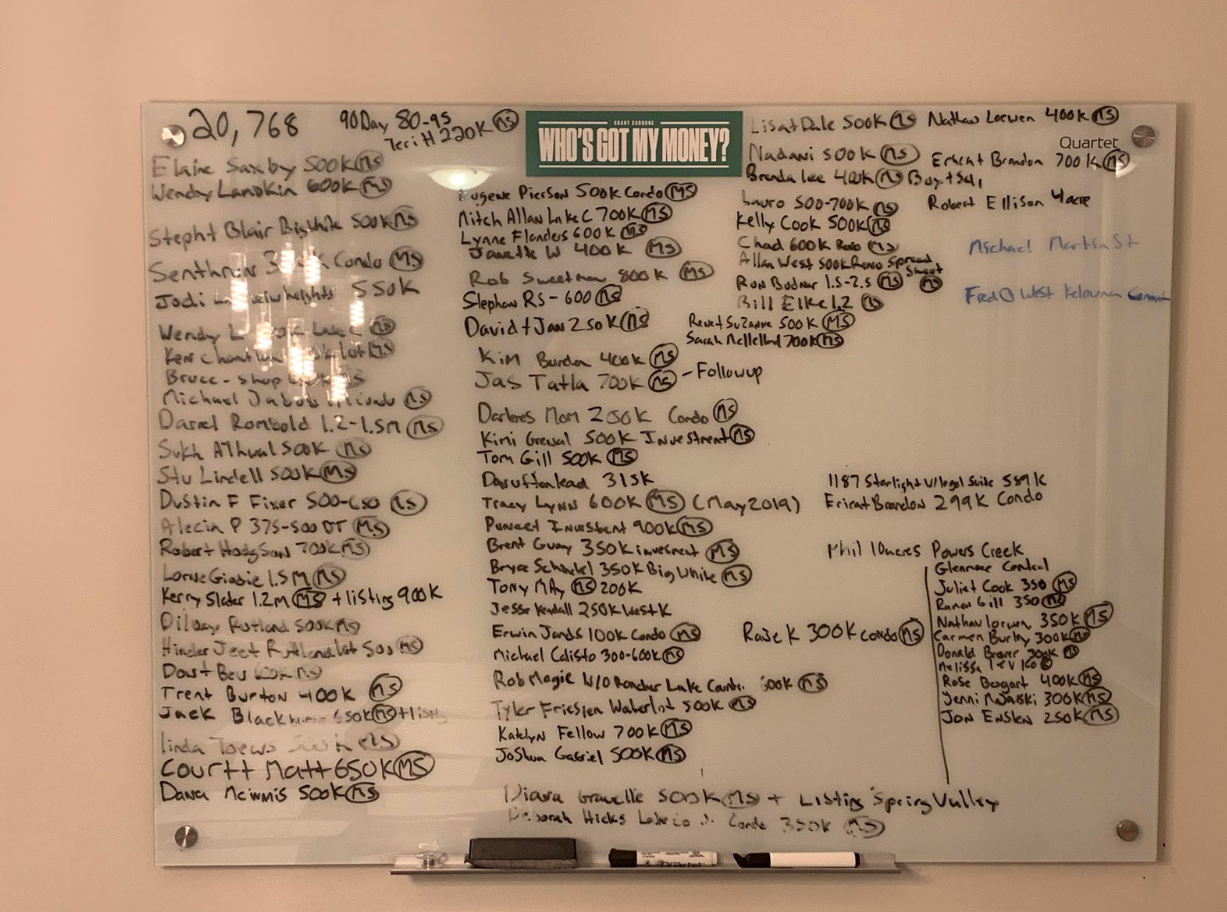 20,768
90Day 80-95
Teri H 220K MS
GRANT CARDONE
WHO'S GOT MY MONEY?
Quartet
Elaine Saxby 500K MS
Wendy Lamskin 600K MS
Steph + Blair Big White 500K MS
Condo MS
Jodi 550K
Wendy L Lake C MS
Ken
Bruce - Shop
Michael
Darrel Rombold 1.2-1.5m MS
Sukh Athwal 500K MS
Stu Lindell 500K MS
Dustin F Fixer 500-650 MS
Alecia P 375-500 DT MS
Robert Hodgson 700K MS
Lorne Giasie 1.5M MS
Kerry Slader 1.2m MS + listing 900K
Rutland 500K MS
Hinder Jeet Rutland lot 500 MS
MS
Trent Burton 400K MS
Jack Black 650K MS +
Linda Toews 500K MS
Court + Matt 650K MS
Dana 500K MS
Eugene Pierson 500K Condo MS
Mitch Allan Lake C 700K MS
Lynne Flanders 600K MS
Janette W 400K MS
Rob Sweetman 800K MS
Stephan RS - 600 MS
David + Jan 250K MS
Kim Burden 400K MS
Jas Tatla 700K MS - Followup
Darlenes Mom 250K Condo MS
Kimi Grewal 500K Investment MS
Tom Gill 500K MS
315K
Tracy Lynn 600K MS (May 2019)
Puneet Investent 900K MS
Brent Guay 350K invesment MS
Bryce Schinkel 350K Big White MS
Tony MS 200K
Jesse Kendall 250K West K
Erwin Jands 100K Condo MS
Michael Calisto 300-600K MS
Rob Magic W/O Rancher Lake 500K MS
Tyler Friesen Waterlot 500K MS
Katelyn Fellow 700K MS
Joshua Gabriel 500K MS
Diana Gravelle 500K MS + Listing Spring Valley
Deborah Hicks Condo 350K MS
Lisa + Dale 500K MS
Nadani 500K MS
Brenda Lee 400K MS Buy + Sell
Lauro 500-700K MS
Kelly Cook 500K MS
Chad 600K Reno MS
Allan West 500K Reno Spread Sheet MS
Ron Bodnar 1.5-2.5 MS
Bill Elke 1.2 MS
Rene + Suzanne 500K MS
Sarah 700K MS
Nathan Loewen 400K MS
Eric + Brandon 700K MS
Robert Ellison 4acre
Michael Martin St
Fred West Kelowna
1187 Starlight w/legal Suite 589K
Eric + Brandon 299K Condo
Phil 10acres Powers Creek
Glenmore Central
Juliet Cook 350 MS
Raman Gill 350 MS
Nathan Loewen 350K MS
Carmen Burley 300K MS
Donald 300K MS
Melissa
Rose Bogart 400K MS
Jenni 300K MS
Jon Ensken 250K MS
300K Condo MS
Quartet